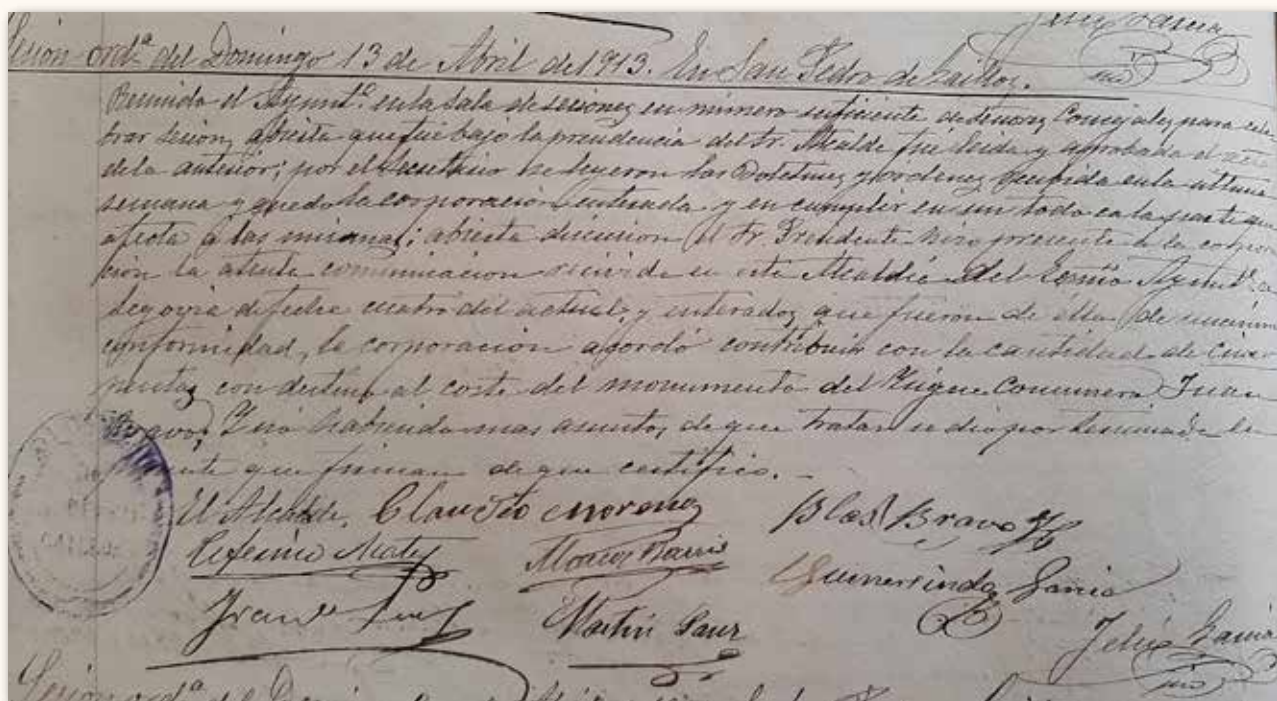 Felix Garcia
Sesion ordª del Domingo 13 de Abril de 1913. En San Pedro de Gaillos.
Reunido el Ayuntº en la sala de sesiones en número suficiente de señores Concejales para cele
brar sesion, abierta que fue bajo la presidencia del Sr. Alcalde fué leida y aprobada el acta
dela anterior; por el Secretario se leyeron los Boletines y ordenes recividas en la ultima
semana y quedo la corporación enterada y en cumplir en un todo en la parte que
afecta á las mismas; abierta discusion el Sr. Presidente hizo presente a la corpora
ción la atenta comunicacion recivida en esta Alcaldia del Ayuntº de
Segovia de fecha cuatro del actual, y enterados que fueron de élla, de unánime
conformidad, la corporación acordó contribuir con la cantidad de cinco
pesetas con destino al coste del monumento del Comunero Juan
Bravo; Y no habiendo mas asuntos de que tratar se dio por terminada la
presente que firman de que certifico.-
El Alcalde, Claudio Moreno Blas Bravo
Ceferino Marcos Gumersindo Garcia
Franco Martin Sanz Felix Garcia
Sesion ordª del Domingo